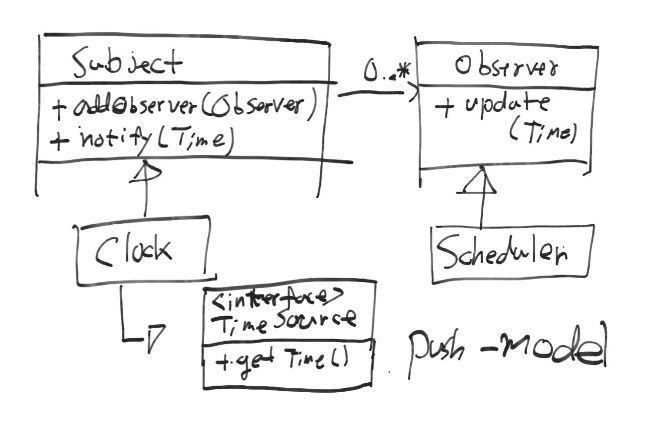 Subject
+ addObserver(Observer)
+ notify(Time)
0..*
Observer
+ update
(Time)
Clock
Scheduler
<interface>
TimeSource
+ getTime()
Push-Model